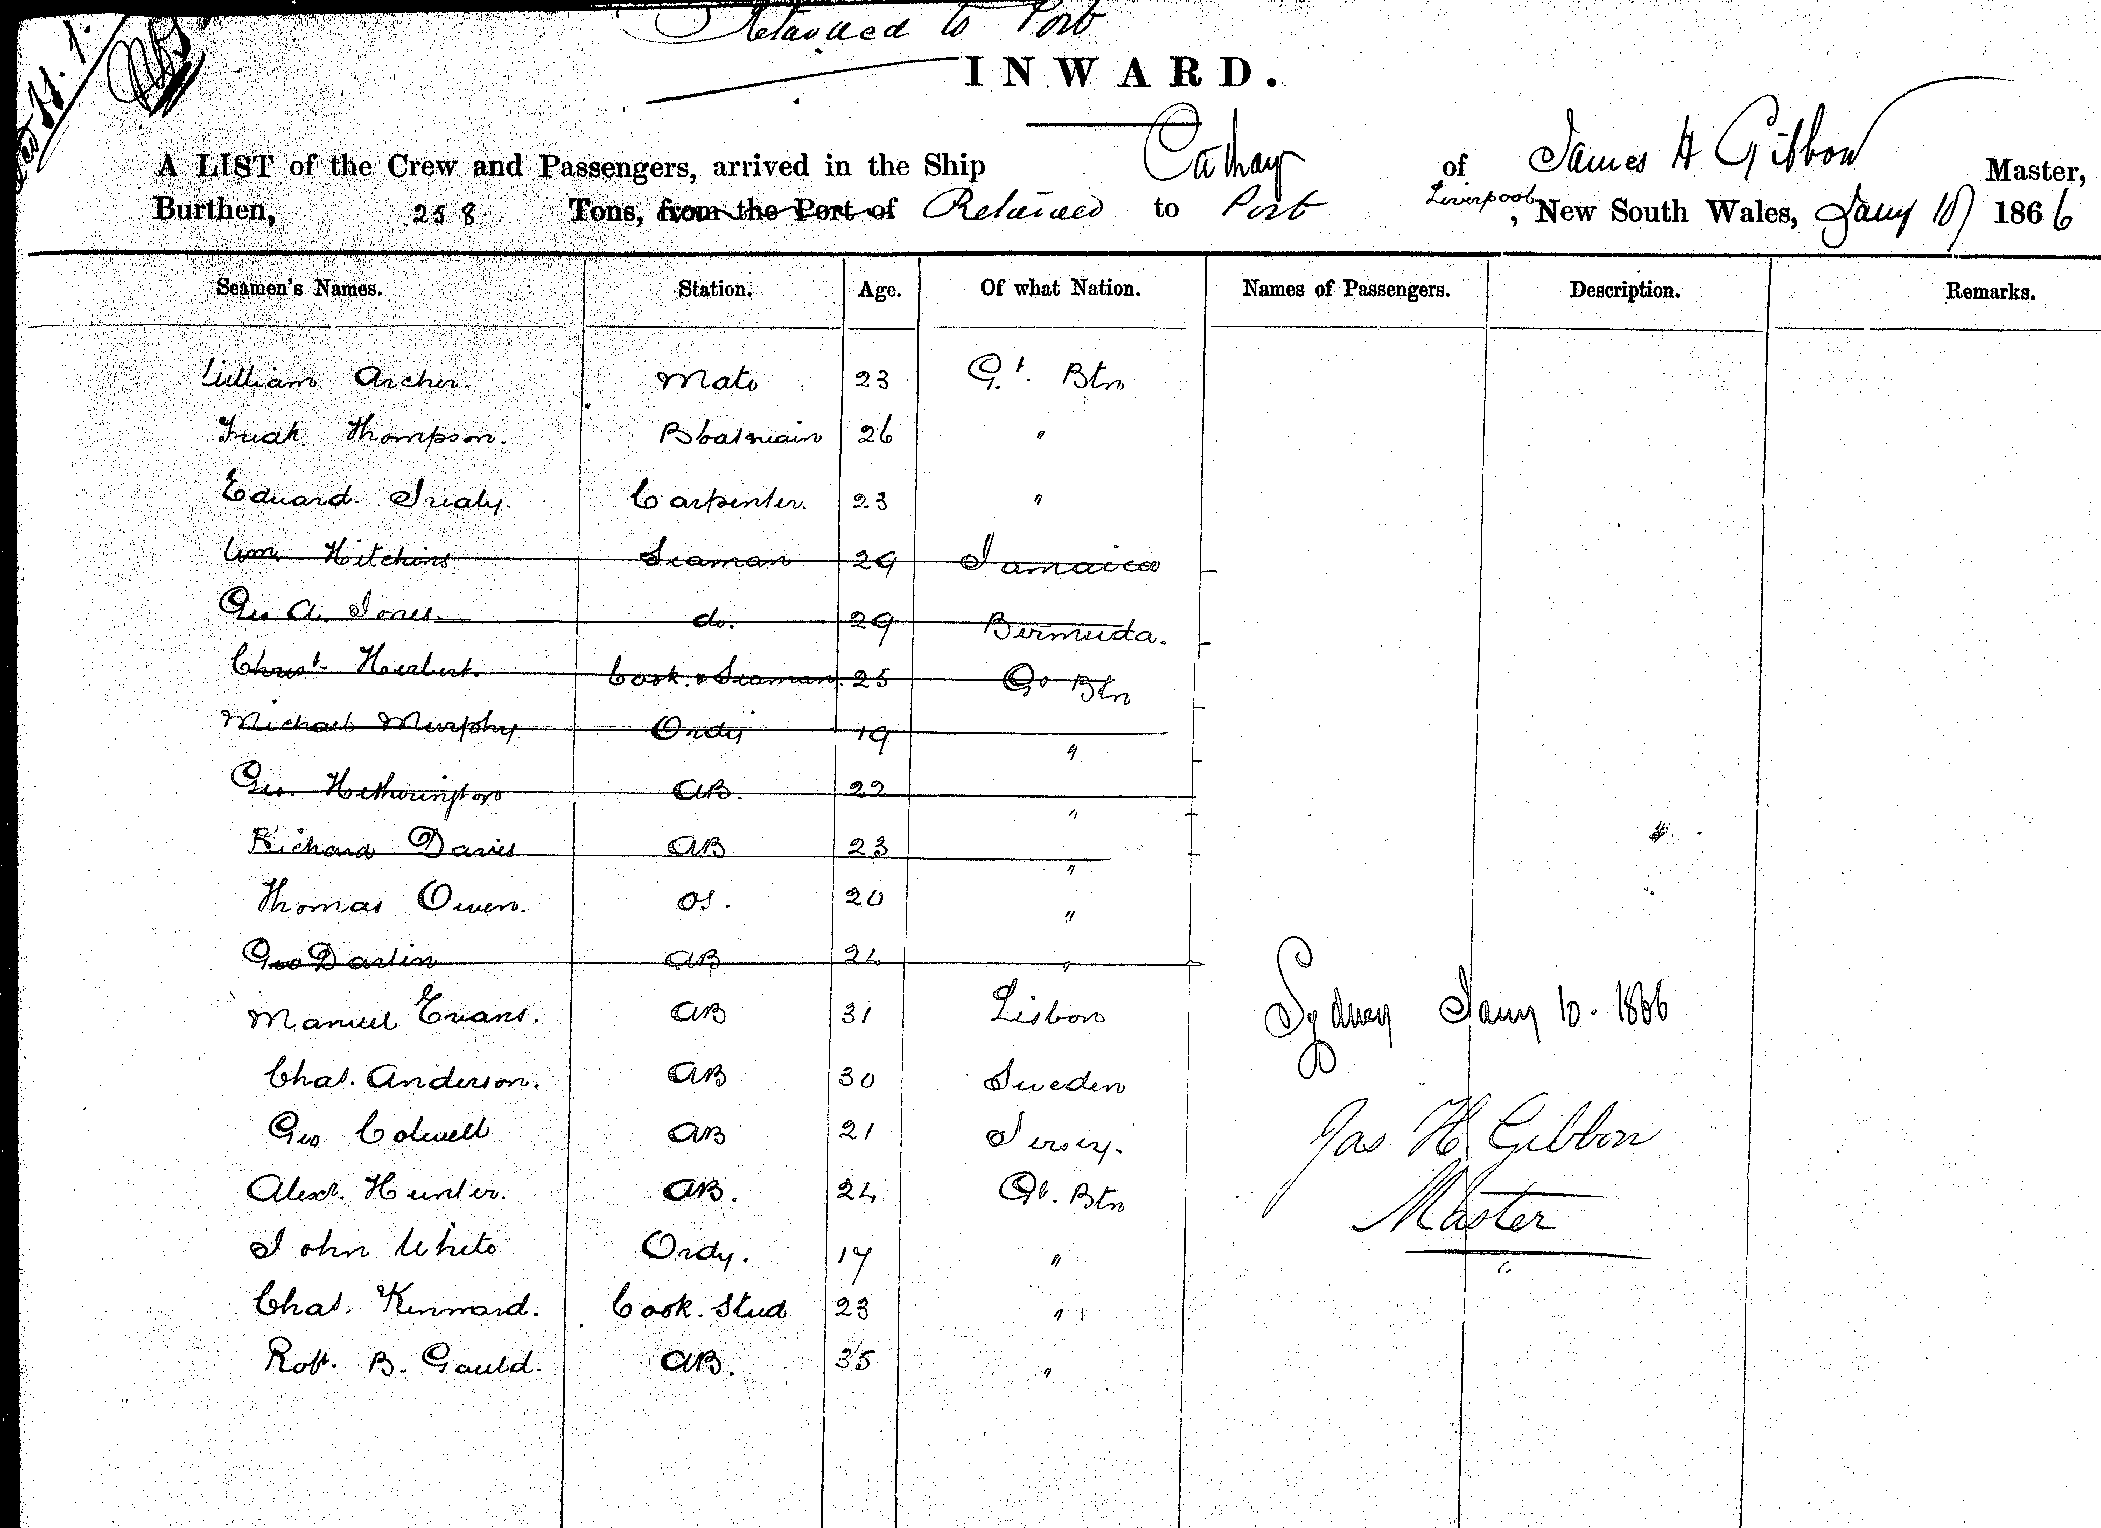 Returned to Port
INWARD.
A LIST of the Crew and Passengers, arrived in the Ship Cathay of Liverpool, James H Gibbon Master,
Burthen, 258 Tons, from the Port of Returned to Port, New South Wales, Jany 10 1866
Seamen's Names. Station. Age. Of what Nation. Names of Passengers. Description. Remarks.
William Archer. Mate 23 Gt. Btn
Thompson. Boatswain 26 "
Edward Carpenter. 23 "
Wm Hitchins Seaman 29 Jamaica
Geo A. Jones. do. 29 Bermuda.
Christ Herbert. Cook & Seaman. 25 Gt Btn
Michael Murphy Ordy 19 "
Geo. Hetherington AB. 22 "
Richard Davies AB 23 "
Thomas Owen. OS. 20 "
Geo Darlin AB 24 "
Manuel Evans. AB 31 Lisbon
Sydney Jany 10. 1866
Chas. Anderson. AB 30 Sweden
Geo Colwell AB 21 Jersey.
Jas H Gibbon
Alexr. Hunter. AB. 24 Gt. Btn
Master
John White Ordy. 17 "
Chas. Kinnard. Cook. Stud 23 "
Robt. B. Gauld. AB. 35 "